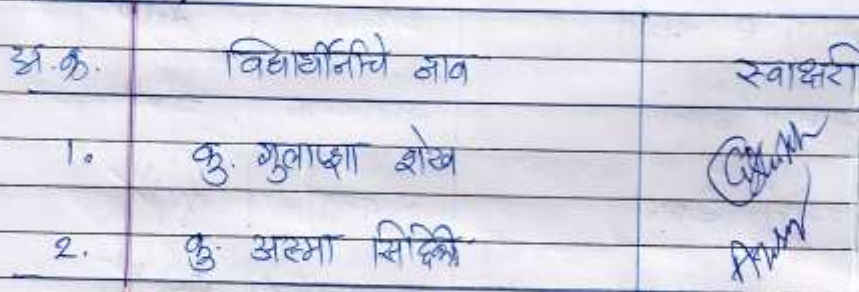 अ.क्र. विद्यार्थीनीचे नाव स्वाक्षरी
1. कु. गुलाफ्शा शेख
2. कु. अस्मा सिद्दिकी